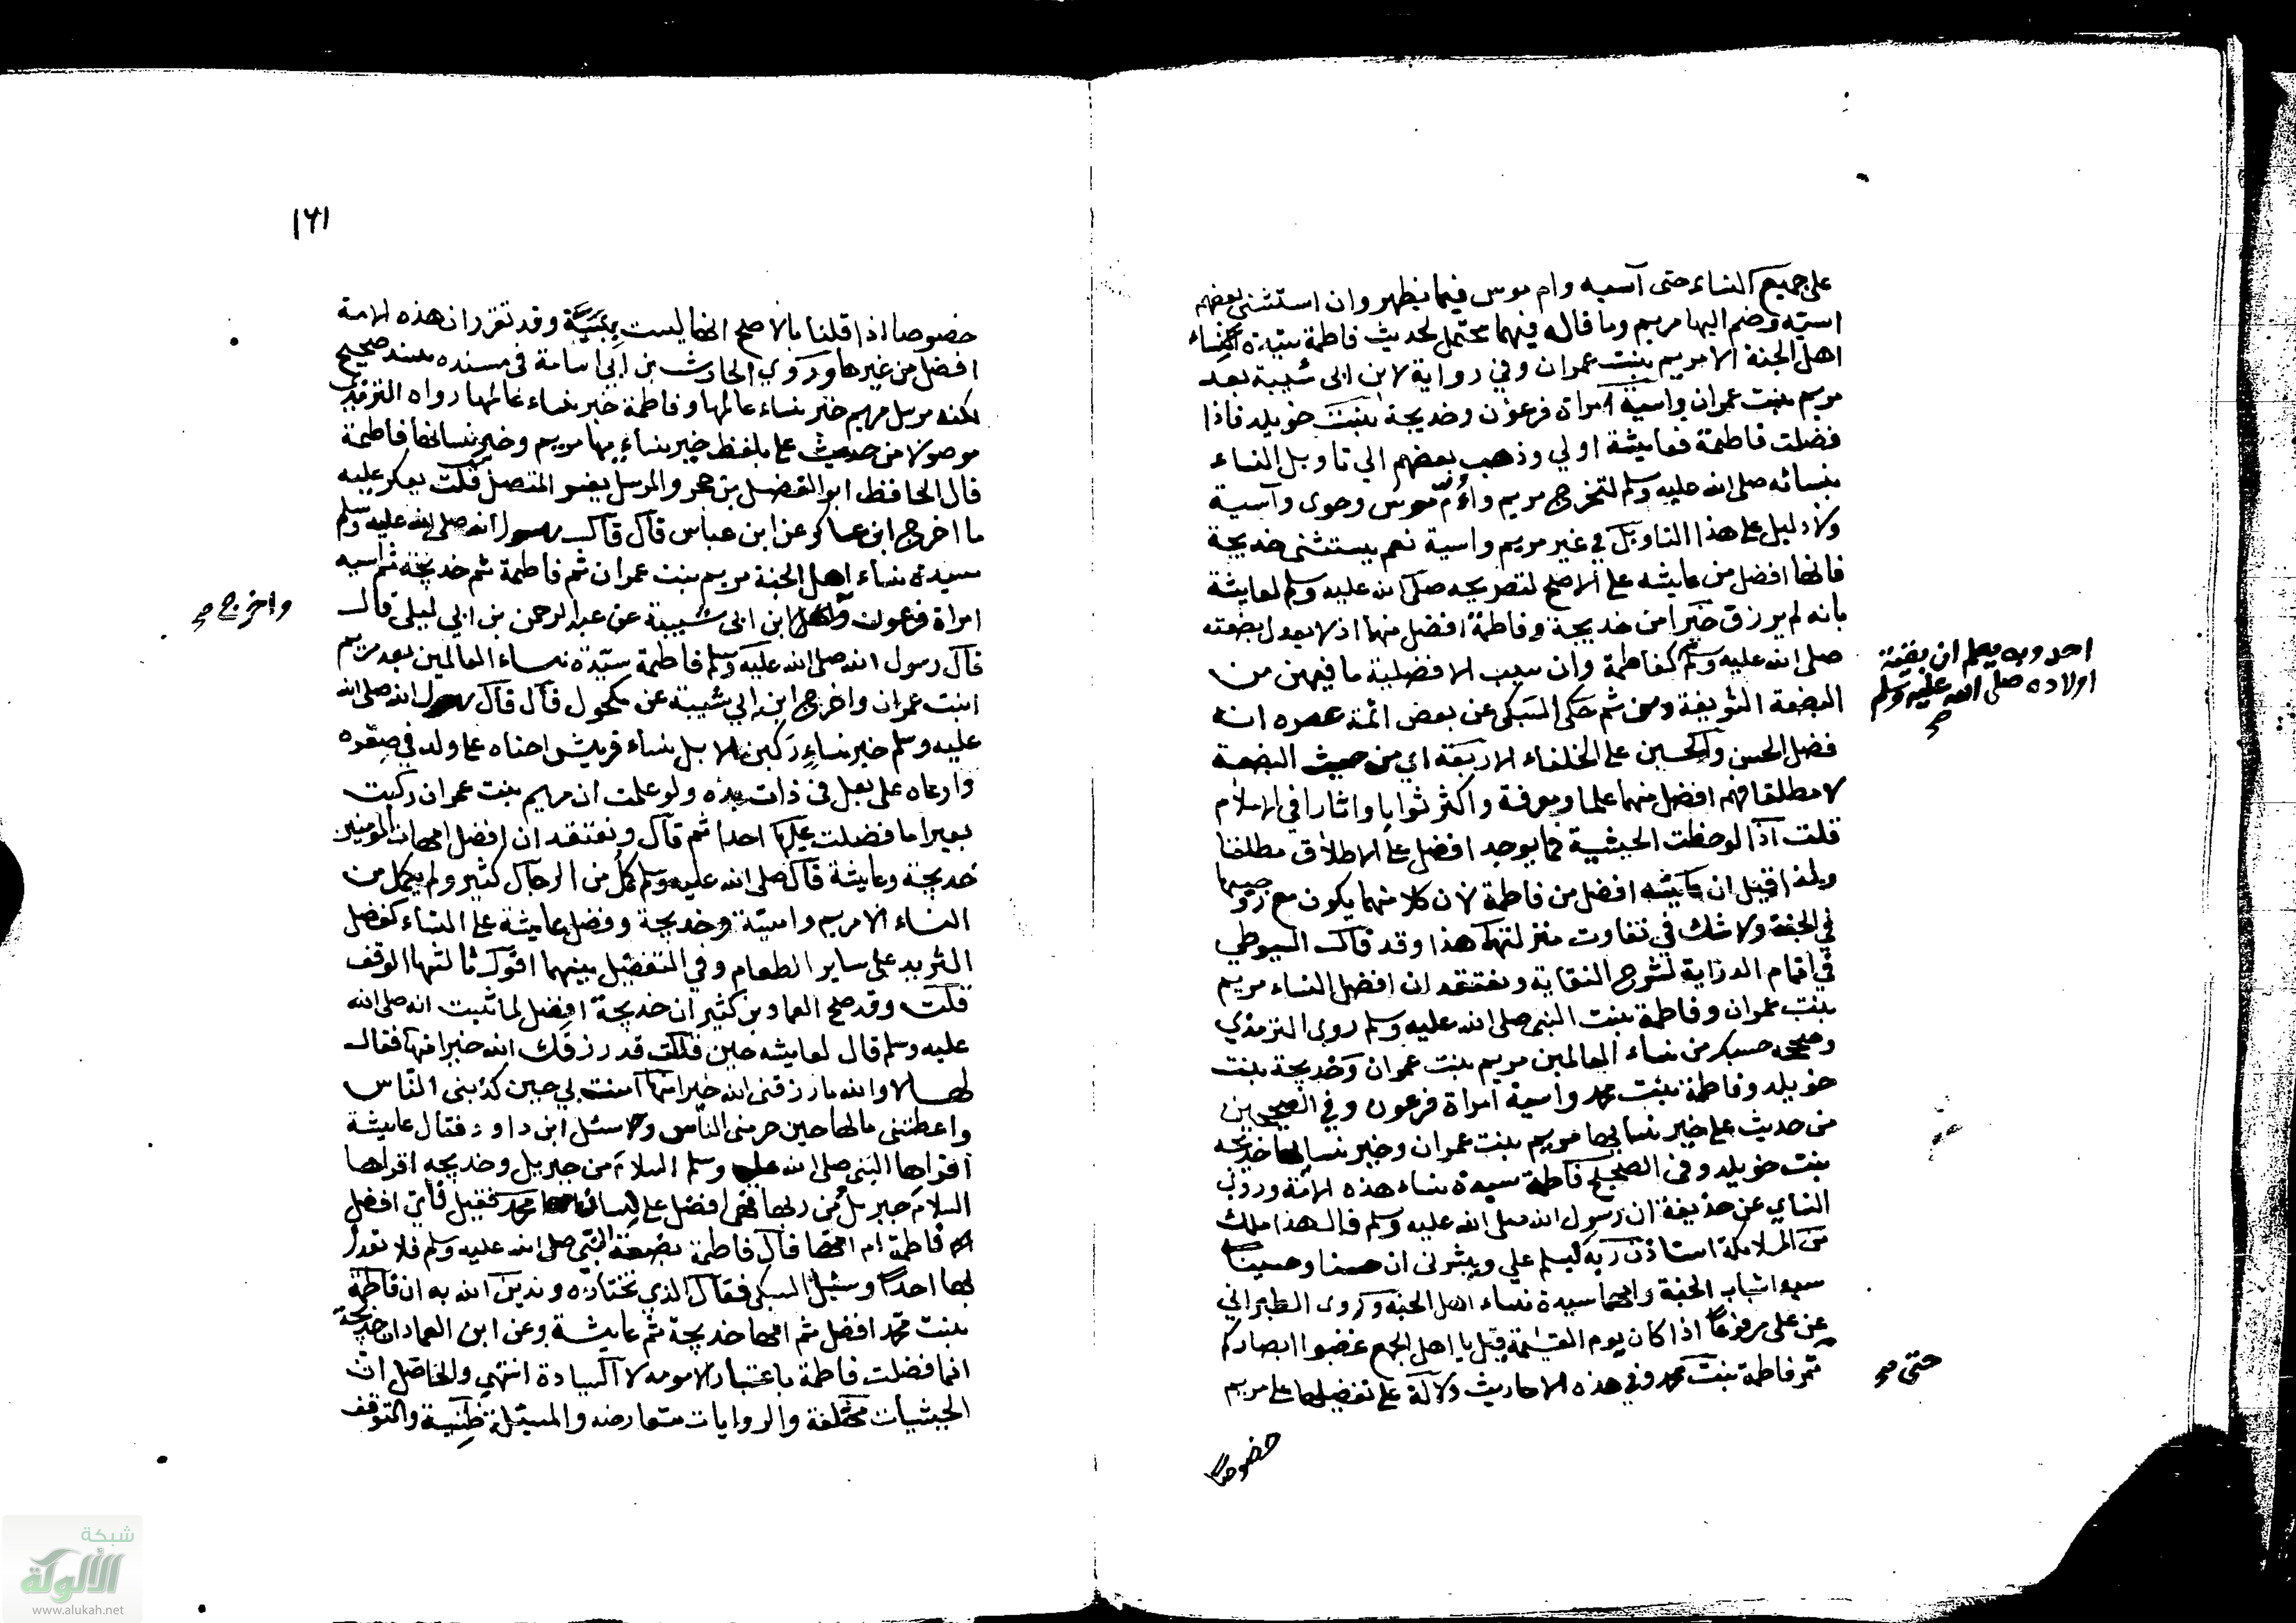 على جميع النساء حتى آسيه وام موسى فيما يظهر وان استثنى بعضهم
اسيه وضم اليها مريم وما قاله فيهما محتمل لحديث فاطمة سيدة نساء
اهل الجنة الا مريم بنت عمران وفي رواية لابن ابى شيبة بعد
مريم بنت عمران واسية امراة فرعون وخديجة بنت خويلد فاذا
فضلت فاطمة فعايشة اولي وذهب بعضهم الي تاويل النساء
بنسائه صلى الله عليه وسلم لتخرج مريم وأم موسى وحوى وآسية
ولا دليل على هذا التاويل في غير مريم واسية نعم يستثنى خديجة
فانها افضل من عايشه على الاصح لتصريحه صلى الله عليه وسلم لعايشة
بانه لم يرزق خيرا من خديجة وفاطمة افضل منهما اذ لا يعدل بضعته
صلى الله عليه وسلم كفاطمة وان سبب الافضلية ما فيهن من
احد وبه يعلم ان بقية
اولاده صلى الله عليه وسلم
صح
البضعة الشريفة ومن ثم حكى السبكى عن بعض ائمة عصره انه
فضل الحسن والحسين على الخلفاء الاربعة اي من حيث البضعة
لا مطلقا فهم افضل منهما علما ومعرفة واكثر ثوابا واثارا في الاسلام
قلت اذا لوحظت الحيثية فما يوجد افضل على الاطلاق مطلقا
ولهذا قيل ان عايشه افضل من فاطمة لان كلا منهما يكون مع زوجيهما
في الجنة ولا شك في تفاوت منزلتهما هذا وقد قال السيوطي
في اتمام الدراية لشرح النقاية ونعتقد ان افضل النساء مريم
بنت عمران وفاطمة بنت النبى صلى الله عليه وسلم روى الترمذي
وصححه حسبك من نساء العالمين مريم بنت عمران وخديجة بنت
خويلد وفاطمة بنت محمد واسية امراة فرعون وفي الصحيحين
من حديث على خير نسايها مريم بنت عمران وخير نسايها خديجه
بنت خويلد وفى الصحيح فاطمة سيدة نساء هذه الامة وروى
النساي عن حذيفة ان رسول الله صلى الله عليه وسلم قال هذا ملك
من الملايكة استاذن ربه ليسلم على ويبشرنى ان حسنا وحسينا
سيدا شباب الجنة وامهما سيدة نساء اهل الجنة وروى الطبراني
عن على مرفوعا اذا كان يوم القيمة قيل يا اهل الجمع غضوا ابصاركم
حتى صح
تمر فاطمة بنت محمد وفي هذه الاحاديث دلالة على تفضيلها على مريم
خصوصا
١٦١
خصوصا اذا قلنا بالاصح انها ليست بنبية وقد تقرر ان هذه الامة
افضل من غيرها وروي الحارث بن ابي اسامة في مسنده بسند صحيح
لكنه مرسل مريم خير نساء عالمها وفاطمة خير نساء عالمها رواه الترمذي
موصولا من حديث على بلفظ خير نساء يها مريم وخير نسائها فاطمة
قال الحافظ ابو الفضل بن حجر والمرسل يفسر المتصل قلت يعكر عليه
ما اخرج ابن عساكر عن ابن عباس قال قال رسول الله صلى الله عليه وسلم
سيدة نساء اهل الجنة مريم بنت عمران ثم فاطمة ثم خديجة ثم اسيه
واخرج صح
امراة فرعون ابن ابى شيبة عن عبد الرحمن بن ابي ليلى قال
قال رسول الله صلى الله عليه وسلم فاطمة سيدة نساء العالمين بعد مريم
ابنت عمران واخرج ابن ابي شيبة عن مكحول قال قال رسول الله صلى الله
عليه وسلم خير نساء ركبن الابل نساء قريش احناه على ولد في صغره
وارعاه على بعل في ذات يده ولو علمت ان مريم بنت عمران ركبت
بعيرا ما فضلت عليها احدا ثم قال ونعتقد ان افضل امهات المومنين
خديجة وعايشة قال صلى الله عليه وسلم كمل من الرجال كثير ولم يكمل من
النساء الا مريم واسية وخديجة وفضل عايشة على النساء كفضل
الثريد على ساير الطعام وفي التفضيل بينهما اقوال ثالثها الوقف
قلت وقد صحح العماد بن كثير ان خديجة افضل لما ثبت انه صلى الله
عليه وسلم قال لعايشه حين قالت قد رزقك الله خيرا منها فقال
لها لا والله ما رزقنى الله خيرا منها آمنت بي حين كذبنى الناس
واعطتنى مالها حين حرمنى الناس وسئل ابن داود فقال عايشة
اقراها النبى صلى الله عليه وسلم السلام من جبريل وخديجه اقراها
السلام جبريل من ربها فهى افضل على لسان محمد فقيل فاي افضل
فاطمة ام امها قال فاطمة بضعة النبي صلى الله عليه وسلم فلا نعدل
بها احدا وسئل السبكى فقال الذي نختاره وندين الله به ان فاطمة
بنت محمد افضل ثم امها خديجة ثم عايشة وعن ابن العماد ان خديجة
انما فضلت فاطمة باعتبار الامومه لا السيادة انتهي والحاصل ان
الحيثيات مختلفة والروايات متعارضه والمسئلة ظنية والتوقف
شبكة
الألوكة
www.alukah.net